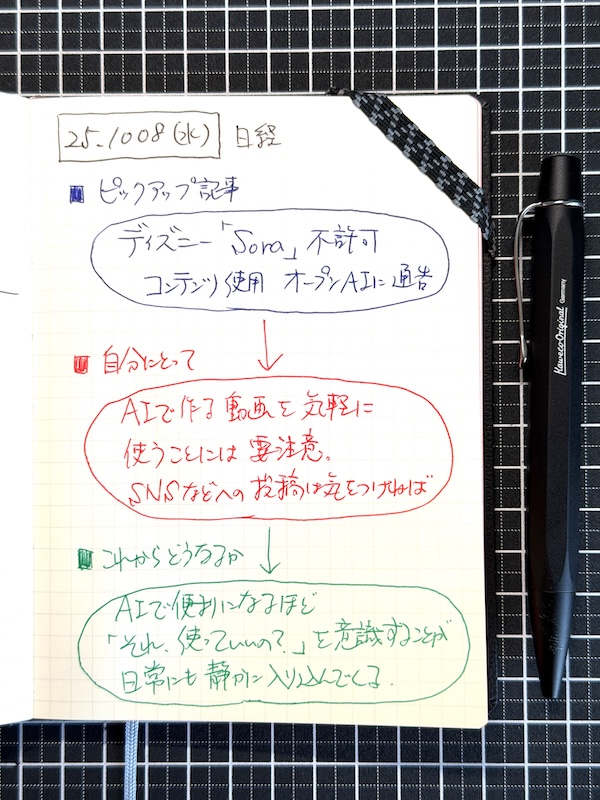 25.1008(水) 日経
■ ピックアップ記事
ディズニー「Sora」不許可
コンテンツ使用 オープンAIに通告
■ 自分にとって
AIで作る動画を気軽に
使うことには要注意。
SNSなどへの投稿は気をつけねば
■ これからどうなるか
AIで便利になるほど
「それ、使っていいの?」を意識することが
日常にも静かに入り込んでくる.
Kaweco Original Germany